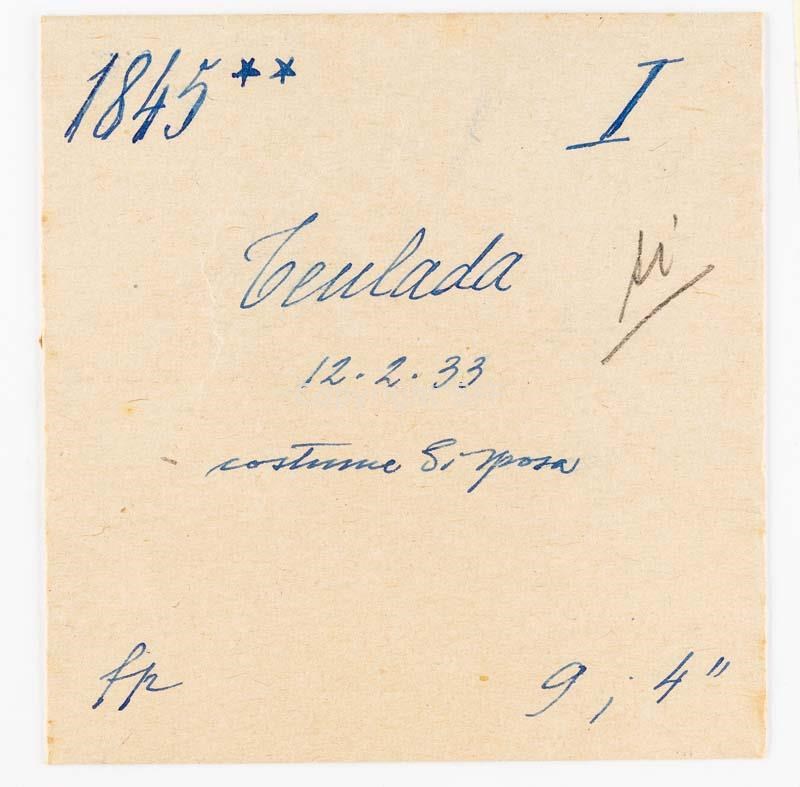 1845** I
Teulada
si
12.2.33
costume di sposa
fp 9 ; 4"